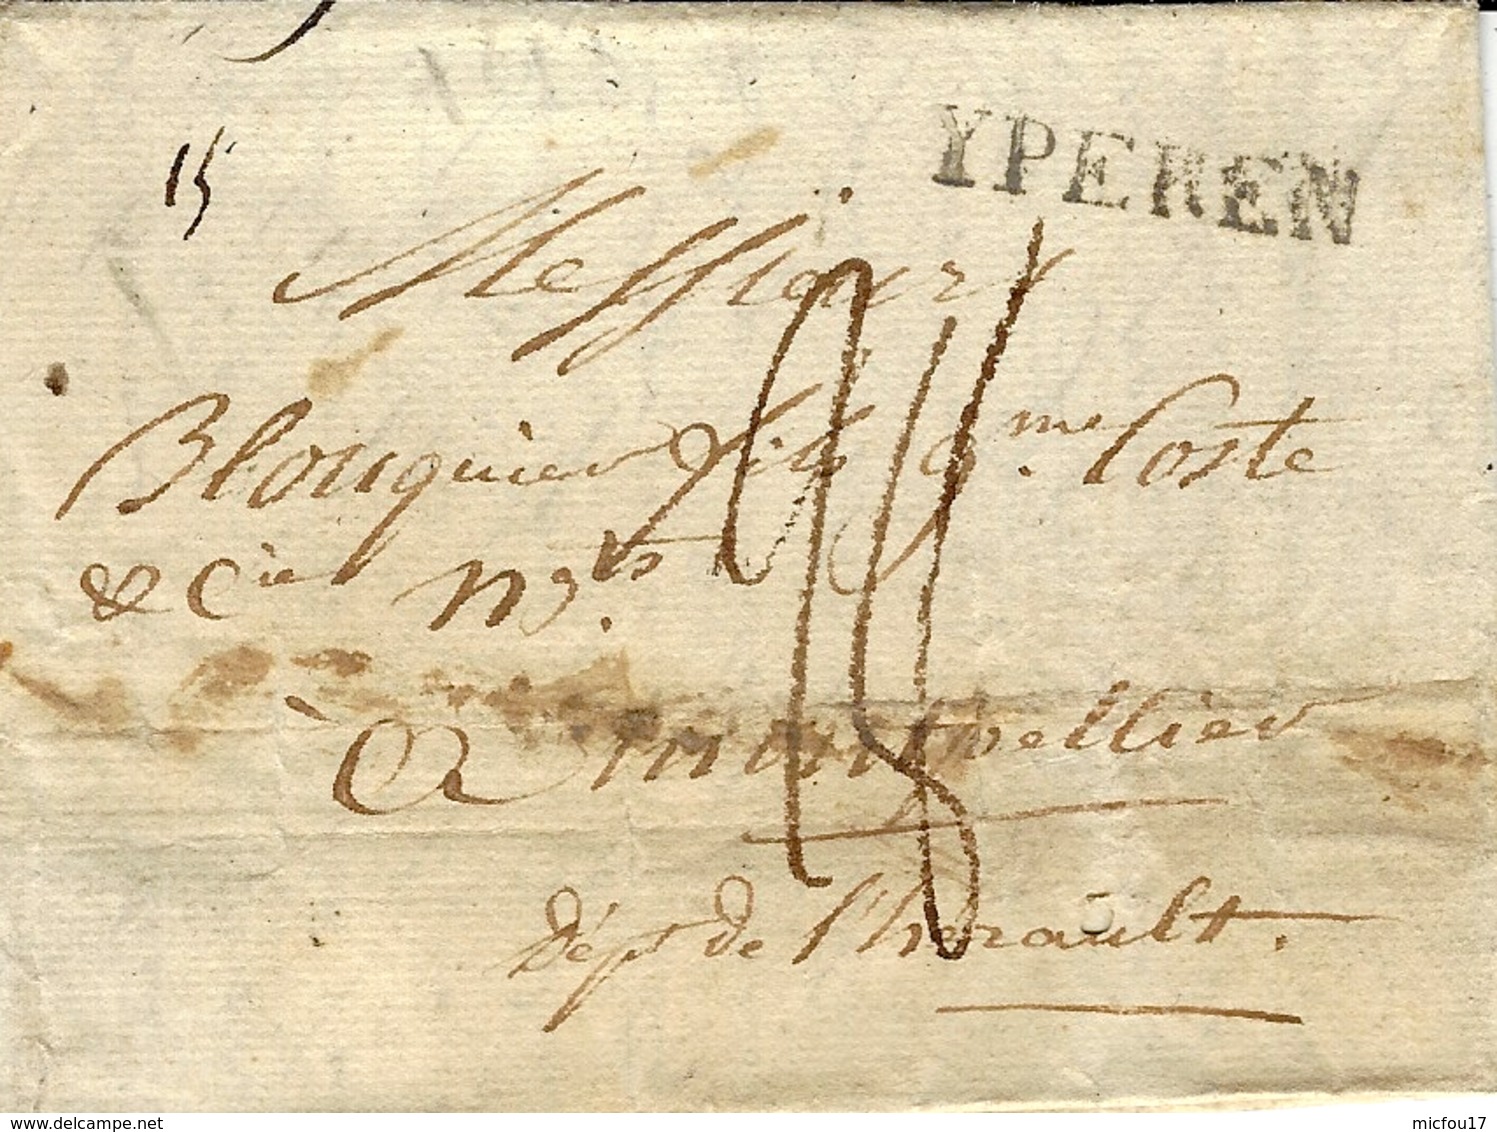 15
YPEREN
Messieurs
Blouquier fils g.me Coste
& Cie Ngts.
à Montpellier
Dépt de l'herault.
delcampe.net
micfou17